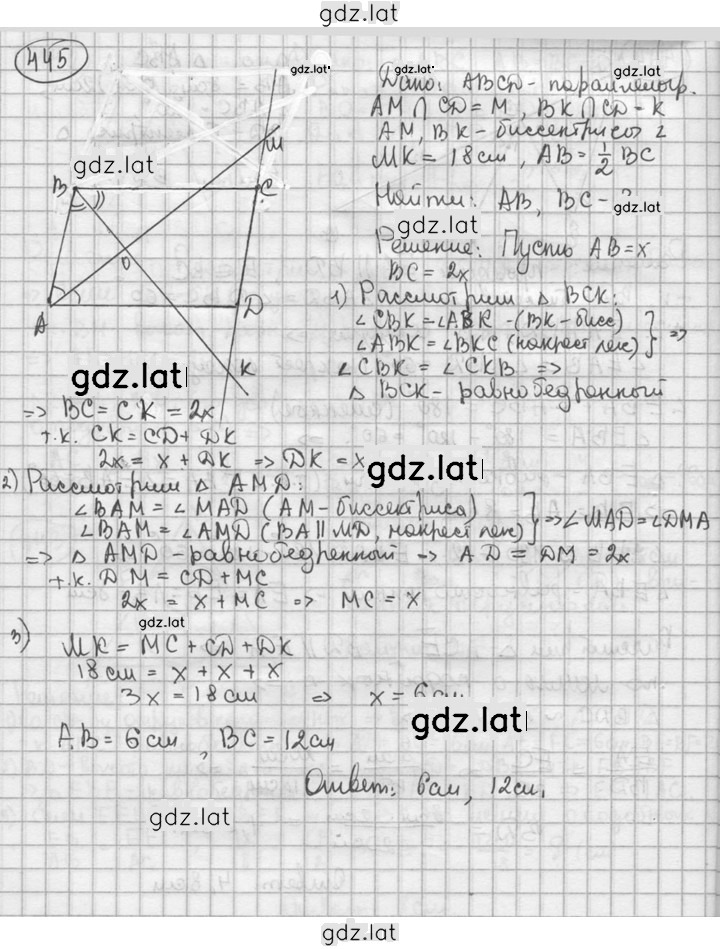 gdz.lat
445
gdz.lat
Дано: ABCD - параллелогр.
AM ∩ CD = M, BK ∩ CD = K
AM, BK - биссектрисы ∠
MK = 18 см, AB = 1/2 BC
Найти: AB, BC - ?
gdz.lat
gdz.lat
Решение: Пусть AB = x
BC = 2x
gdz.lat
M
B
C
O
A
D
K
1) Рассмотрим △ BCK:
∠CBK = ∠ABK - (BK - бисс)
∠ABK = ∠BKC (накрест леж) } =>
∠CBK = ∠CKB =>
△ BCK - равнобедренный
gdz.lat
=> BC = CK = 2x
т.к. CK = CD + DK
2x = x + DK => DK = x
gdz.lat
2) Рассмотрим △ AMD:
∠BAM = ∠MAD (AM - биссектриса)
∠BAM = ∠AMD (BA || MD, накрест леж) } => ∠MAD = ∠DMA
=> △ AMD - равнобедренный => AD = DM = 2x
т.к. DM = CD + MC
2x = x + MC => MC = x
gdz.lat
3) MK = MC + CD + DK
18 см = x + x + x
3x = 18 см => x = 6 см
gdz.lat
AB = 6 см, BC = 12 см
Ответ: 6 см, 12 см.
gdz.lat
gdz.lat